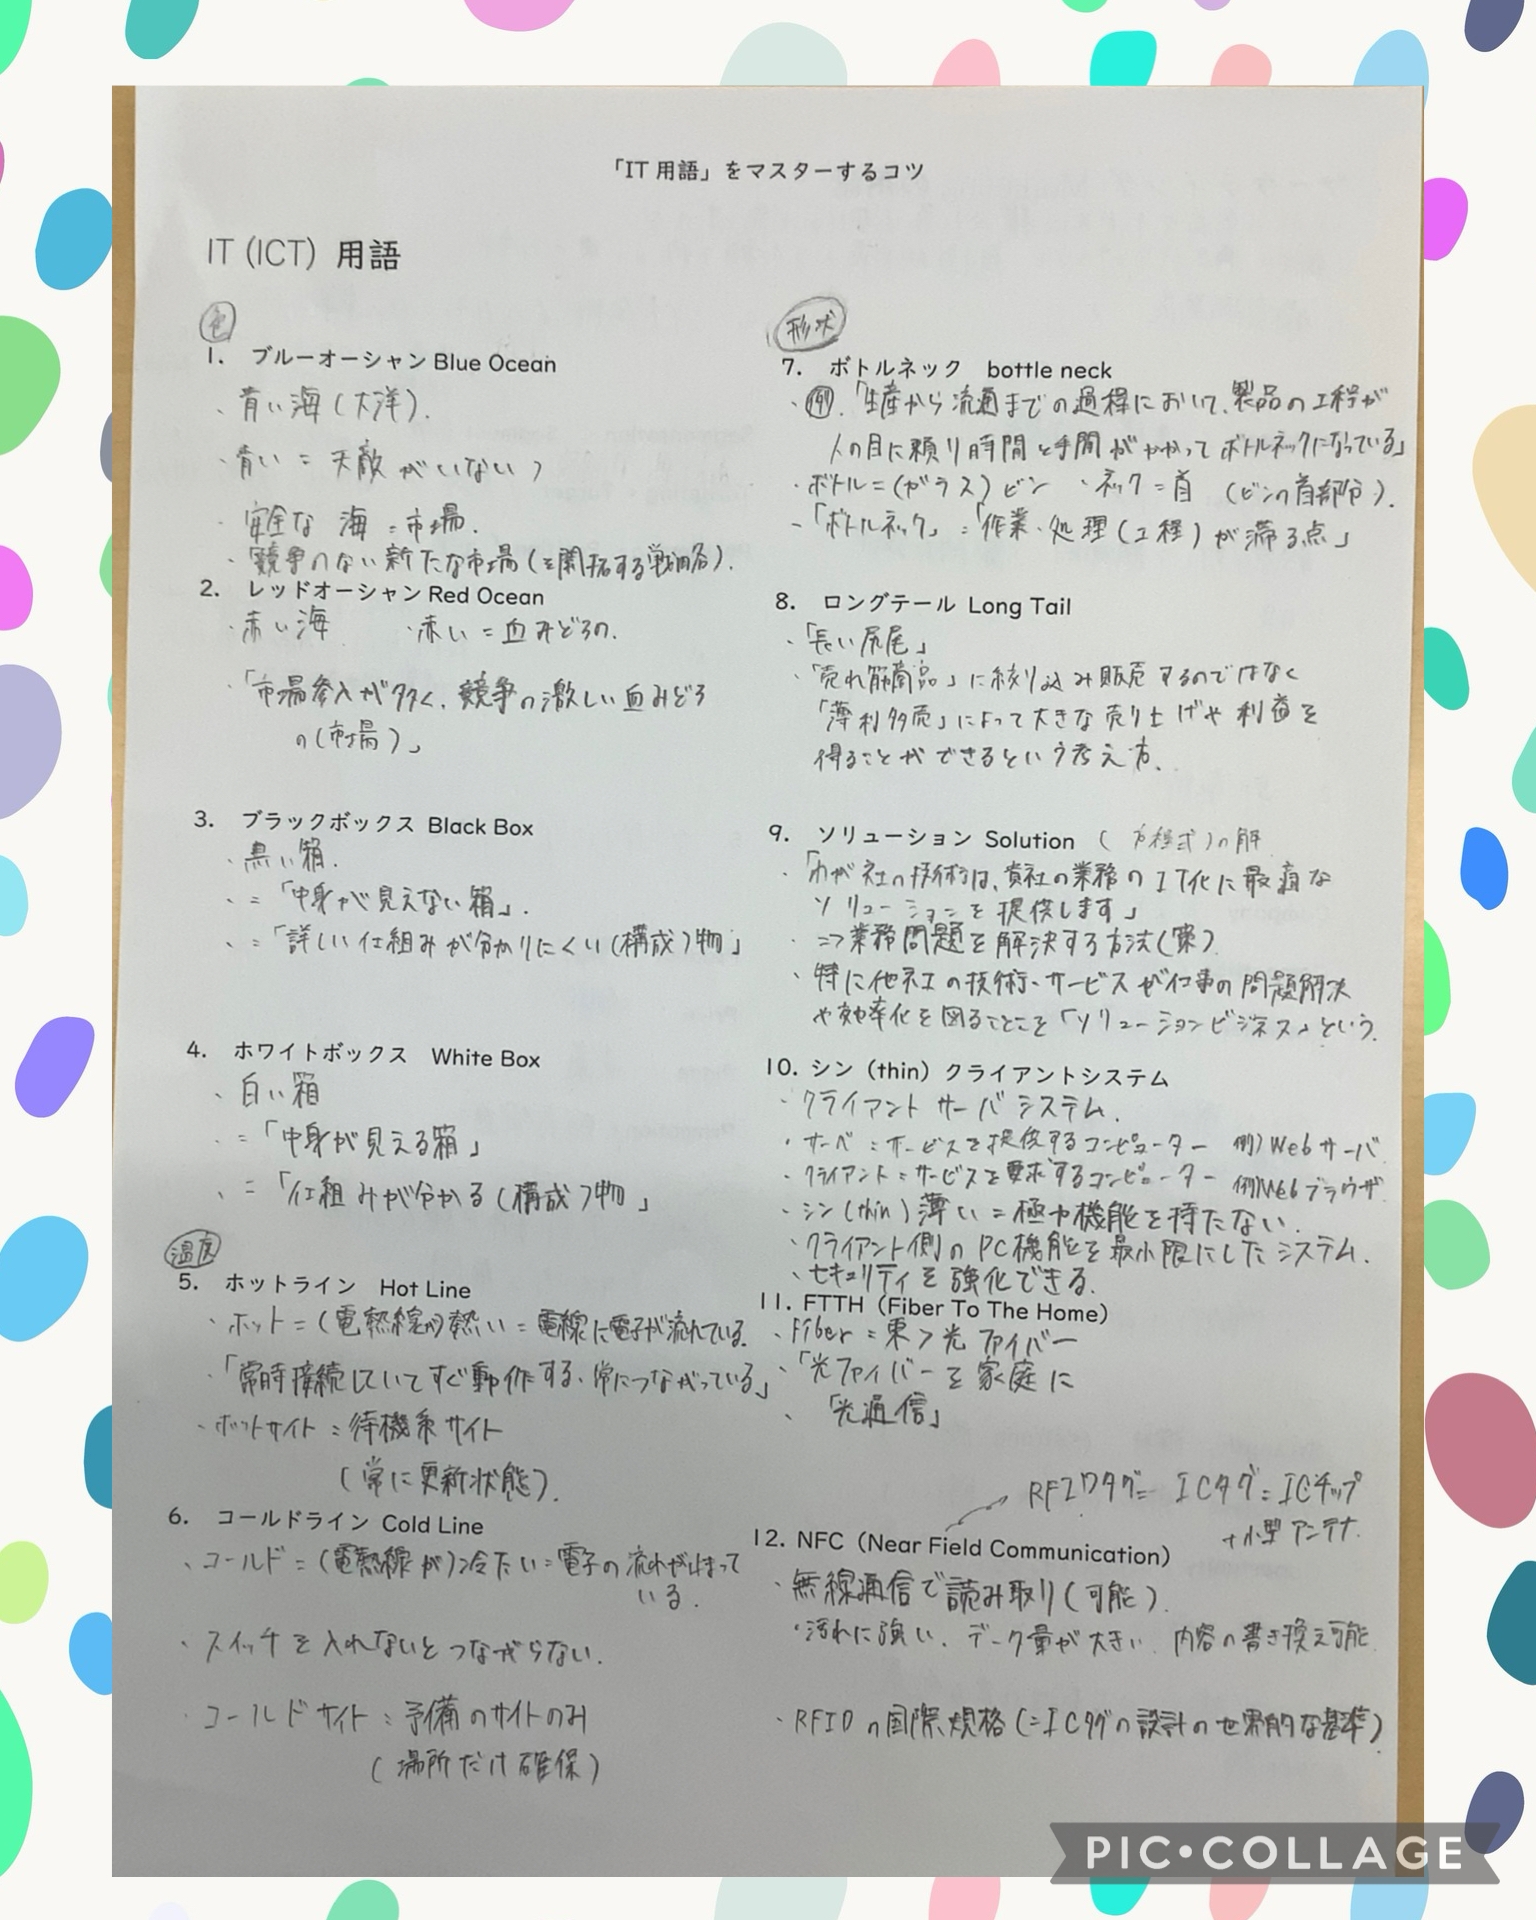 「IT 用語」をマスターするコツ
IT (ICT) 用語
色
1. ブルーオーシャン Blue Ocean
・青い海(大洋).
・青い = 天敵がいない
・安全な海 = 市場.
・競争のない新たな市場(を開拓する戦略).
2. レッドオーシャン Red Ocean
・赤い海 ・赤い = 血みどろの.
・「市場参入が多く、競争の激しい血みどろ
の(市場)」
3. ブラックボックス Black Box
・黒い箱.
・=「中身が見えない箱」.
・=「詳しい仕組みが分かりにくい(構成)物」
4. ホワイトボックス White Box
・白い箱
・=「中身が見える箱」
・=「仕組みが分かる(構成)物」
温度
5. ホットライン Hot Line
・ホット=(電熱線が)熱い = 電線に電子が流れている.
・「常時接続していてすぐ動作する、常につながっている」
・ホットサイト = 待機系サイト
(常に更新状態).
6. コールドライン Cold Line
・コールド=(電熱線が)冷たい = 電子の流れが止まって
いる.
・スイッチを入れないとつながらない.
・コールドサイト = 予備のサイトのみ
(場所だけ確保)
形状
7. ボトルネック bottle neck
・例.「生産から流通までの過程において、製品の工程が
人の目に頼り時間と手間がかかってボトルネックになっている」
・ボトル=(ガラス)ビン ・ネック=首 (ビンの首部分).
-「ボトルネック」=「作業・処理(工程)が滞る点」
8. ロングテール Long Tail
・「長い尻尾」
・「売れ筋商品」に絞り込み販売するのではなく
「薄利多売」によって大きな売り上げや利益を
得ることができるという考え方.
9. ソリューション Solution (方程式)の解
・「わが社の技術は、貴社の業務のIT化に最適な
ソリューションを提供します」
・=>業務問題を解決する方法(策)
・特に他社の技術・サービスが仕事の問題解決
や効率化を図ることを「ソリューションビジネス」という.
10. シン (thin) クライアントシステム
・クライアントサーバシステム.
・サーバ = サービスを提供するコンピューター 例)Webサーバ
・クライアント = サービスを要求するコンピーター 例)Webブラウザ
・シン(thin)薄い = 極力機能を持たない.
・クライアント側のPC機能を最小限にしたシステム.
・セキュリティを強化できる.
11. FTTH (Fiber To The Home)
・Fiber = 束>光ファイバー
・「光ファイバーを家庭に
・「光通信」
RFIDタグ= ICタグ=ICチップ
+小型アンテナ.
12. NFC (Near Field Communication)
・無線通信で読み取り(可能).
・汚れに強い、データ量が大きい、内容の書き換え可能
・RFIDの国際規格(=ICタグの設計の世界的な基準)
PIC・COLLAGE